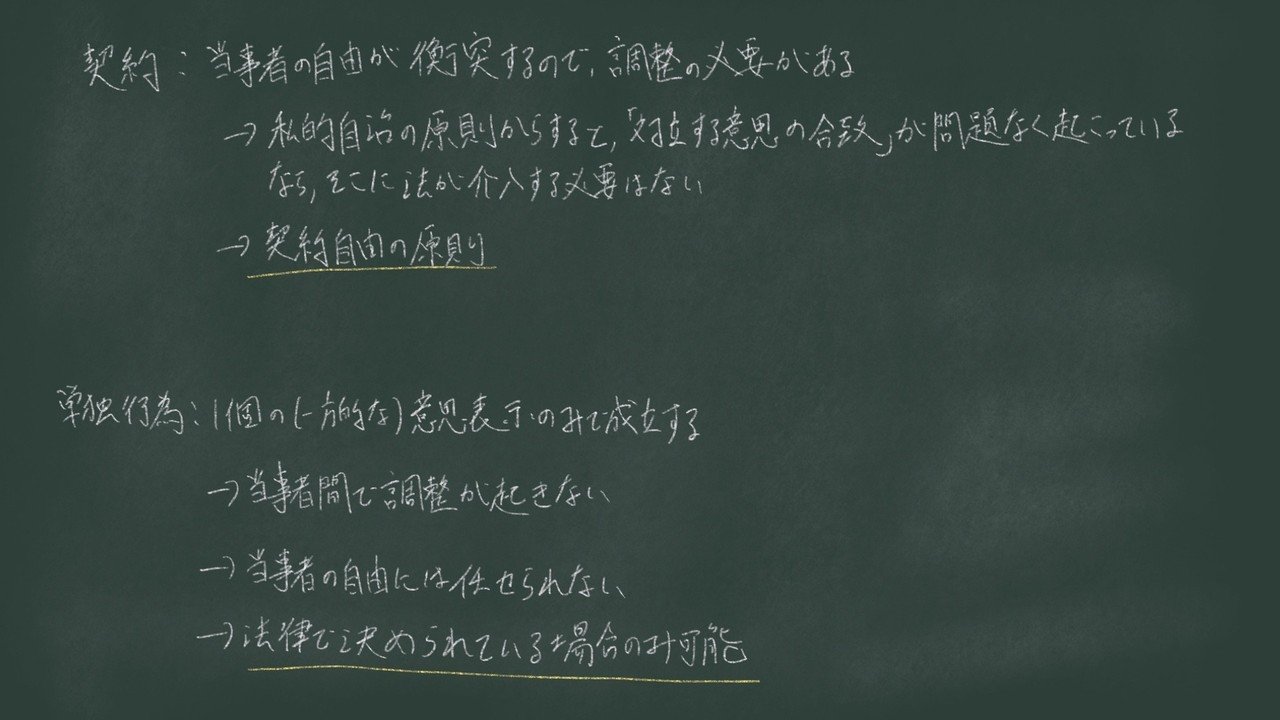 契約：当事者の自由が衝突するので，調整の必要がある
→私的自治の原則からすると，「対立する意思の合致」が問題なく起こっている
なら，そこに法が介入する必要はない
→契約自由の原則
単独行為：1個の(一方的な)意思表示のみで成立する
→当事者間で調整が起きない
→当事者の自由には任せられない
→法律で決められている場合のみ可能